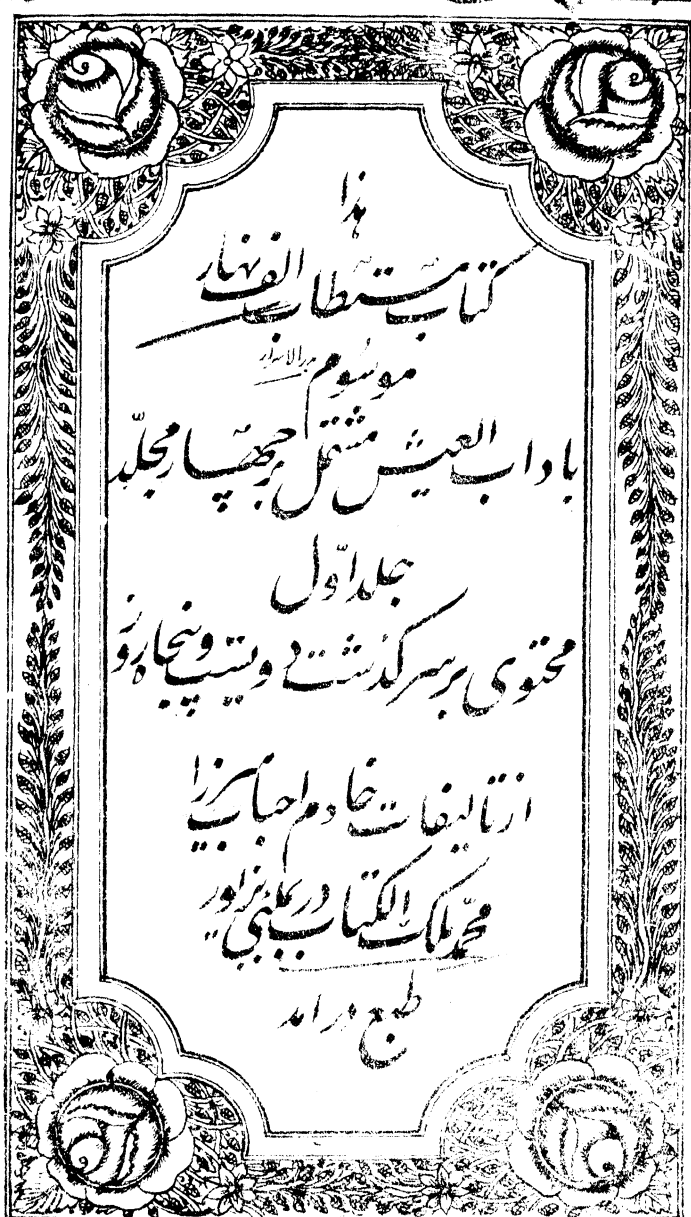 هذا
کتاب مستطاب الف نهار
موسوم
باداب العیش مشتمل بر چهار مجلد
جلد اول
محتوی بر سرگذشت دویست و پنجاه روز
از تالیفات خادم احباب میرزا
محمد ملک الکتاب در بمبئی بزیور
طبع درآمد